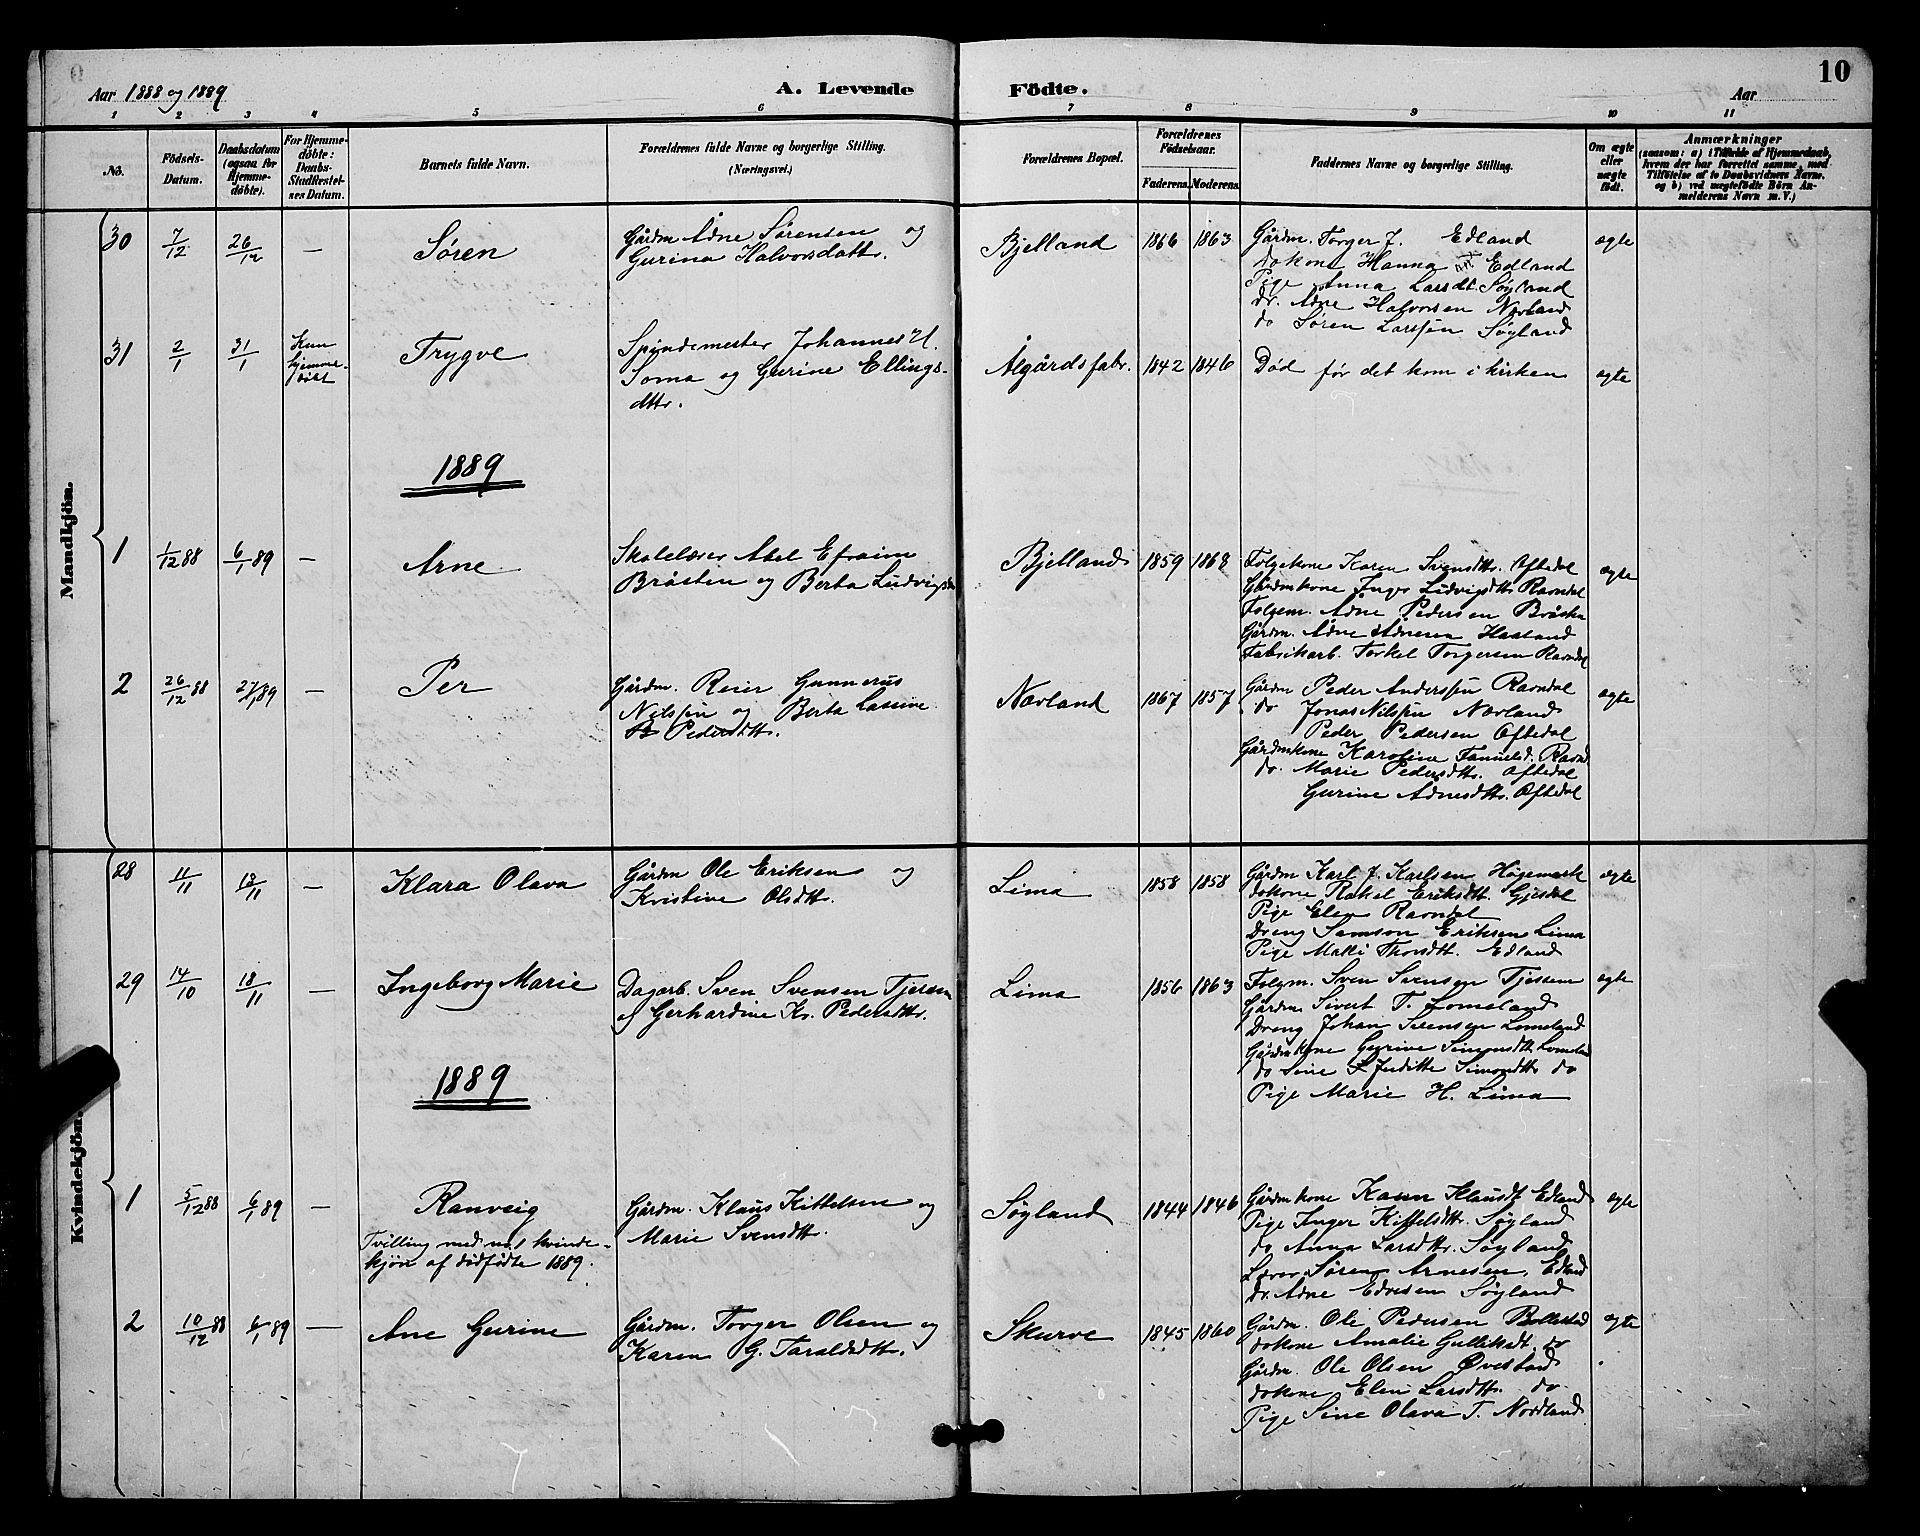 10
Aar 1888 og 1889
A. Levende Födte.
Aar
1 2 3 4 5 6 7 8 9 10 11
No.
Födsels-Datum.
Daabsdatum (ogsaa for Hjemmedöbte).
For Hjemmedöbte: Daabs-Stadfæstelses Datum.
Barnets fulde Navn.
Forældrenes fulde Navne og borgerlige Stilling. (Næringsvei.)
Forældrenes Bopæl.
Forældrenes Födselsaar.
Faderens. Moderens.
Faddernes Navne og borgerlige Stilling.
Om ægte eller uægte födt.
Anmærkninger
(saasom: a) i Tilfælde af Hjemmedaab, hvem der har forrettet samme, med Tilföielse af to Daabsvidners Navne, og b) ved uægtefödte Börn Anmelderens Navn m. V.)
Mandkjön.
30 7/12 26/12 — Søren
Gårdm Adne Sørensen og
Gurina Halvorsdattr.
Bjelland 1866 1863
Gårdm. Torger J. Edland
do kone Hanna Edland
Pige Anna Larsdt. Søyland
dr. Adne Halvorsen Navland
do Søren Larssøn Søyland
ægte
31 2/1 31/1 Kun hjemmedøbt Trygve
Spindemester Johannes H.
Soma og Gurine Ellings-
dttr.
Ålgårdsfabr. 1842 1846
Død før det kom i kirken
ægte
1889
1 1/12 88 6/1 89 — Arne
Skolelærer Abel Efraim
Bråsten og Berta Ludvigsd
Bjelland 1859 1868
Folgekone Karen Svensdttr. Oftedal
Gårdmkone Inger Ludvigsdttr Ravndal
Folgem. Adne Pedersen Bråsten
Gårdm. Adne Adnesen Haaland
Fabrikarb. Torkel Torgersen Ravndal
ægte
2 26/12 88 27/1 89 — Per
Gårdm. Reier Gunnerus
Nilssøn og Berta Lassine
Pedersdttr.
Navland 1867 1857
Gårdm Peder Anderssøn Ravndal
do Jonas Nilssøn Navland
Peder Pedersen Oftedal
Gårdmkone Karoline Tannelsd. Ravnd
do. Marie Pedersdttr. Oftedal
Gurine Adnesdttr. Oftedal
ægte
Kvindekjön.
28 11/11 18/11 — Klara Olava
Gårdm Ole Eriksen og
Kristine Olsdttr.
Lima 1858 1858
Gårdm Karl J. Karlsen Høgemark
do kone Rakel Eriksdtt. Gjesdal
Pige Elen Ravndal
Dreng Samson Eriksen Lima
Pige Malli Thorsdtt. Edland
ægte
29 14/10 18/11 — Ingeborg Marie
Dagarb. Sven Svensen Tjessem
og Gerhardine Kr. Pedersdttr.
Lima 1856 1863
Folgm. Sven Svensen Tjessem
Gårdm Sivert T. Lomeland
Dreng Johan Sørensen Lomeland
Gårdmkone Gurine Simonsdtt. Lomeland
do Sine Juditte Simonsdttr do
Pige Marie H. Lima
ægte
1889
1 5/12 88 6/1 89 — Ranveig
Tvilling med no 1 kvinde-
kjøn af dødfødte 1889.
Gårdm. Klaus Kittelsen og
Marie Svensdttr.
Søyland 1844 1846
Gårdmkone Karen Klausdt Edland
Pige Inger Kittelsdttr. Søyland
do Anna Larsdttr. Søyland
Lærer Søren Arnesen, Edland
dr. Adne Edvesen Søyland
ægte
2 10/12 88 6/1 89 — Ane Gurine
Gårdm. Torger Olsen og
Karen G. Taraldsdttr.
Skurve 1845 1860
Gårdm. Ole Pedersen Bollestad
do kone Amalie Gulliksdt. do
Gårdm Ole Olsen Øvestad
do kone Elen Larsdttr. do
Pige Sine Olava T. Nordland
ægte